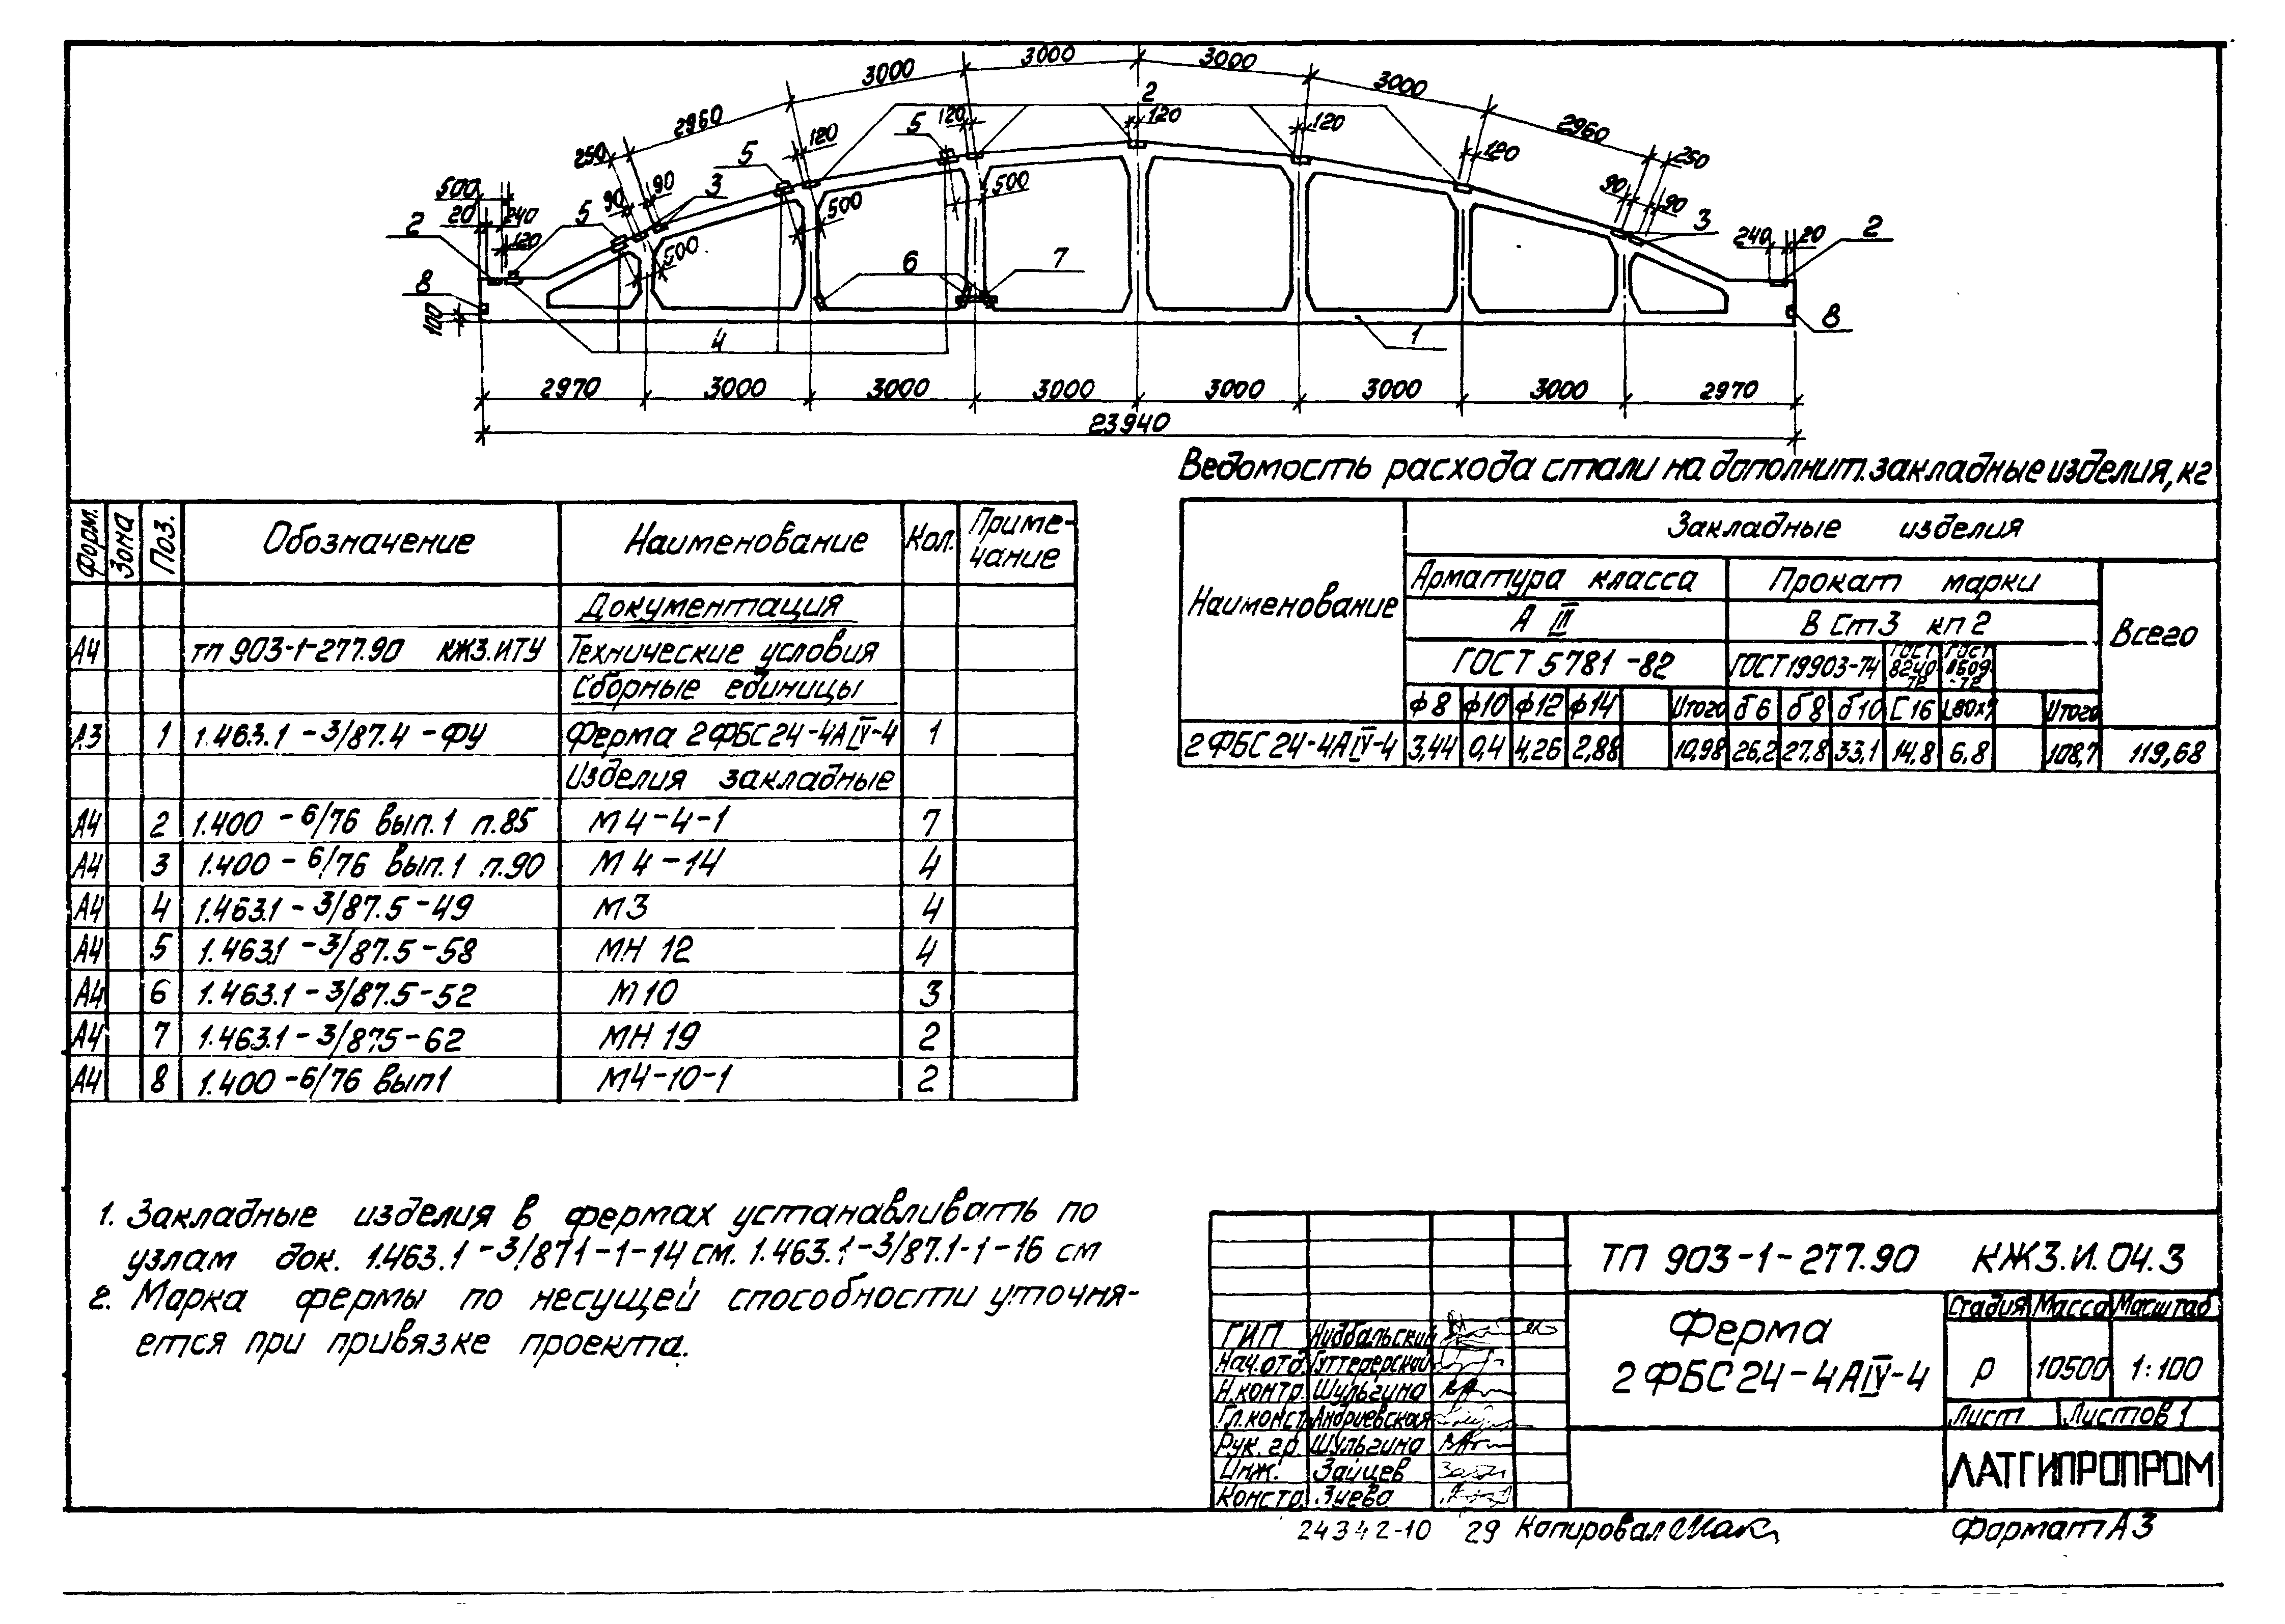 3000 3000 3000 3000
2960 2 2960
250 120 5 120 120 120 120 250
500 90 90 3 5 500 500 500 90 90 3
20 240 5 120 240 20
2 2
8 6 7 8
100 4 1
2970 3000 3000 3000 3000 3000 3000 2970
23940
Ведомость расхода стали на дополнит. закладные изделия, кг
Форм. Зона Поз. Обозначение Наименование Кол. Приме-чание
Документация
А4 ТП 903-1-277.90 КЖ3.ИТУ Технические условия
Сборные единицы
А3 1 1.463.1-3/87.4-ФУ Ферма 2ФБС24-4АIV-4 1
Изделия закладные
А4 2 1.400-6/76 вып.1 п.85 М4-4-1 7
А4 3 1.400-6/76 вып.1 п.90 М4-14 4
А4 4 1.463.1-3/87.5-49 М3 4
А4 5 1.463.1-3/87.5-58 МН 12 4
А4 6 1.463.1-3/87.5-52 М10 3
А4 7 1.463.1-3/87.5-62 МН 19 2
А4 8 1.400-6/76 вып1 М4-10-1 2
Наименование Закладные изделия
Арматура класса Прокат марки Всего
А III ВСт3 кп2
ГОСТ 5781-82 ГОСТ 19903-74 ГОСТ 8240-72 ГОСТ 8509-72
ф8 ф10 ф12 ф14 Итого б6 б8 б10 С16 L80x7 Итого
2ФБС24-4АIV-4 3,44 0,4 4,26 2,88 10,98 26,2 27,8 33,1 14,8 6,8 108,7 119,68
1. Закладные изделия в фермах устанавливать по
узлам док. 1.463.1-3/87.1-1-14 см. 1.463.1-3/87.1-1-16 см
2. Марка фермы по несущей способности уточня-
ется при привязке проекта.
ТП 903-1-277.90 КЖ3.И.04.3
Ферма
2ФБС24-4АIV-4
Стадия Масса Масштаб
Р 10500 1:100
Лист Листов 1
ЛАТГИПРОПРОМ
ГИП Нидбальский
Нач.отд. Гуттерерский
Н.контр. Шульгина
Гл.конст. Андриевская
Рук. гр. Шульгина
Инж. Зайцев
Констр. Зиева
24342-10 29 Копировал Формат А3